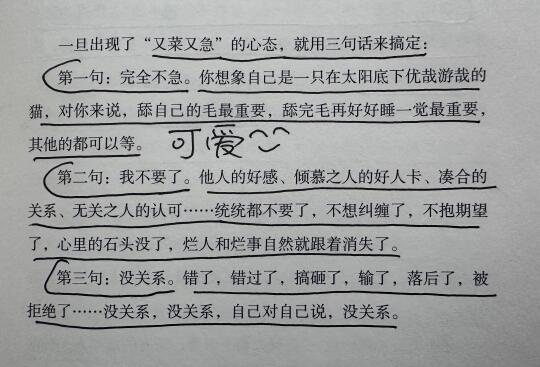 一旦出现了“又菜又急”的心态，就用三句话来搞定：
第一句：完全不急。你想象自己是一只在太阳底下优哉游哉的
猫，对你来说，舔自己的毛最重要，舔完毛再好好睡一觉最重要，
其他的都可以等。 可爱
第二句：我不要了。他人的好感、倾慕之人的好人卡、凑合的
关系、无关之人的认可……统统都不要了，不想纠缠了，不抱期望
了，心里的石头没了，烂人和烂事自然就跟着消失了。
第三句：没关系。错了，错过了，搞砸了，输了，落后了，被
拒绝了……没关系，没关系，自己对自己说，没关系。